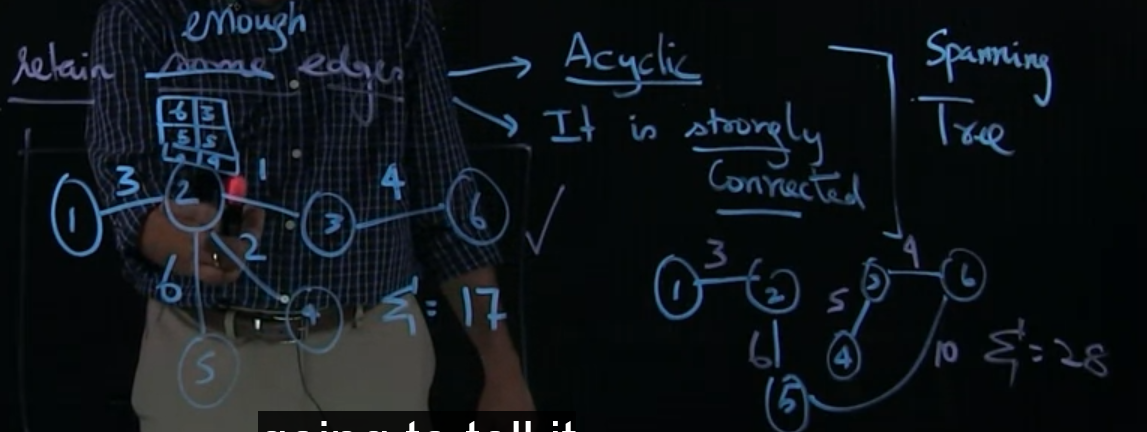 enough
retain some edges
Acyclic
It is strongly
Connected
Spanning
Tree
6 3
5 5
1 3 2 1 3 4 6
6 2
5 4
Σ = 17
1 3 2
6
5
3 4 6
5
4
10
Σ = 28
going to tell it